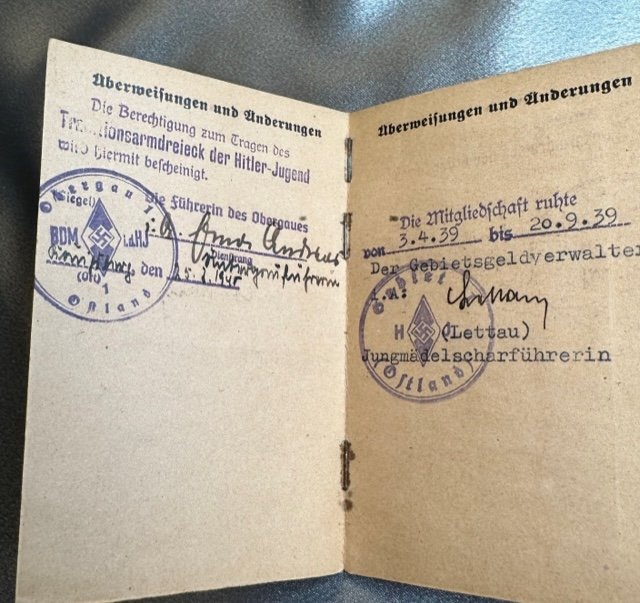 Überweisungen und Änderungen
Die Berechtigung zum Tragen des
Traditionsarmdreieck der Hitler-Jugend
wird hiermit bescheinigt.
Die Führerin des Obergaues
Obergau 1
(Siegel)
BDM i.d.HJ
Dienstrang
den
(Ort)
1
Ostland
Überweisungen und Änderungen
Die Mitgliedschaft ruhte
von 3.4.39 bis 20.9.39
Der Gebietsgeldverwalter
I.A:
Gebiet
H
(Lettau)
Jungmädelscharführerin
(Ostland)